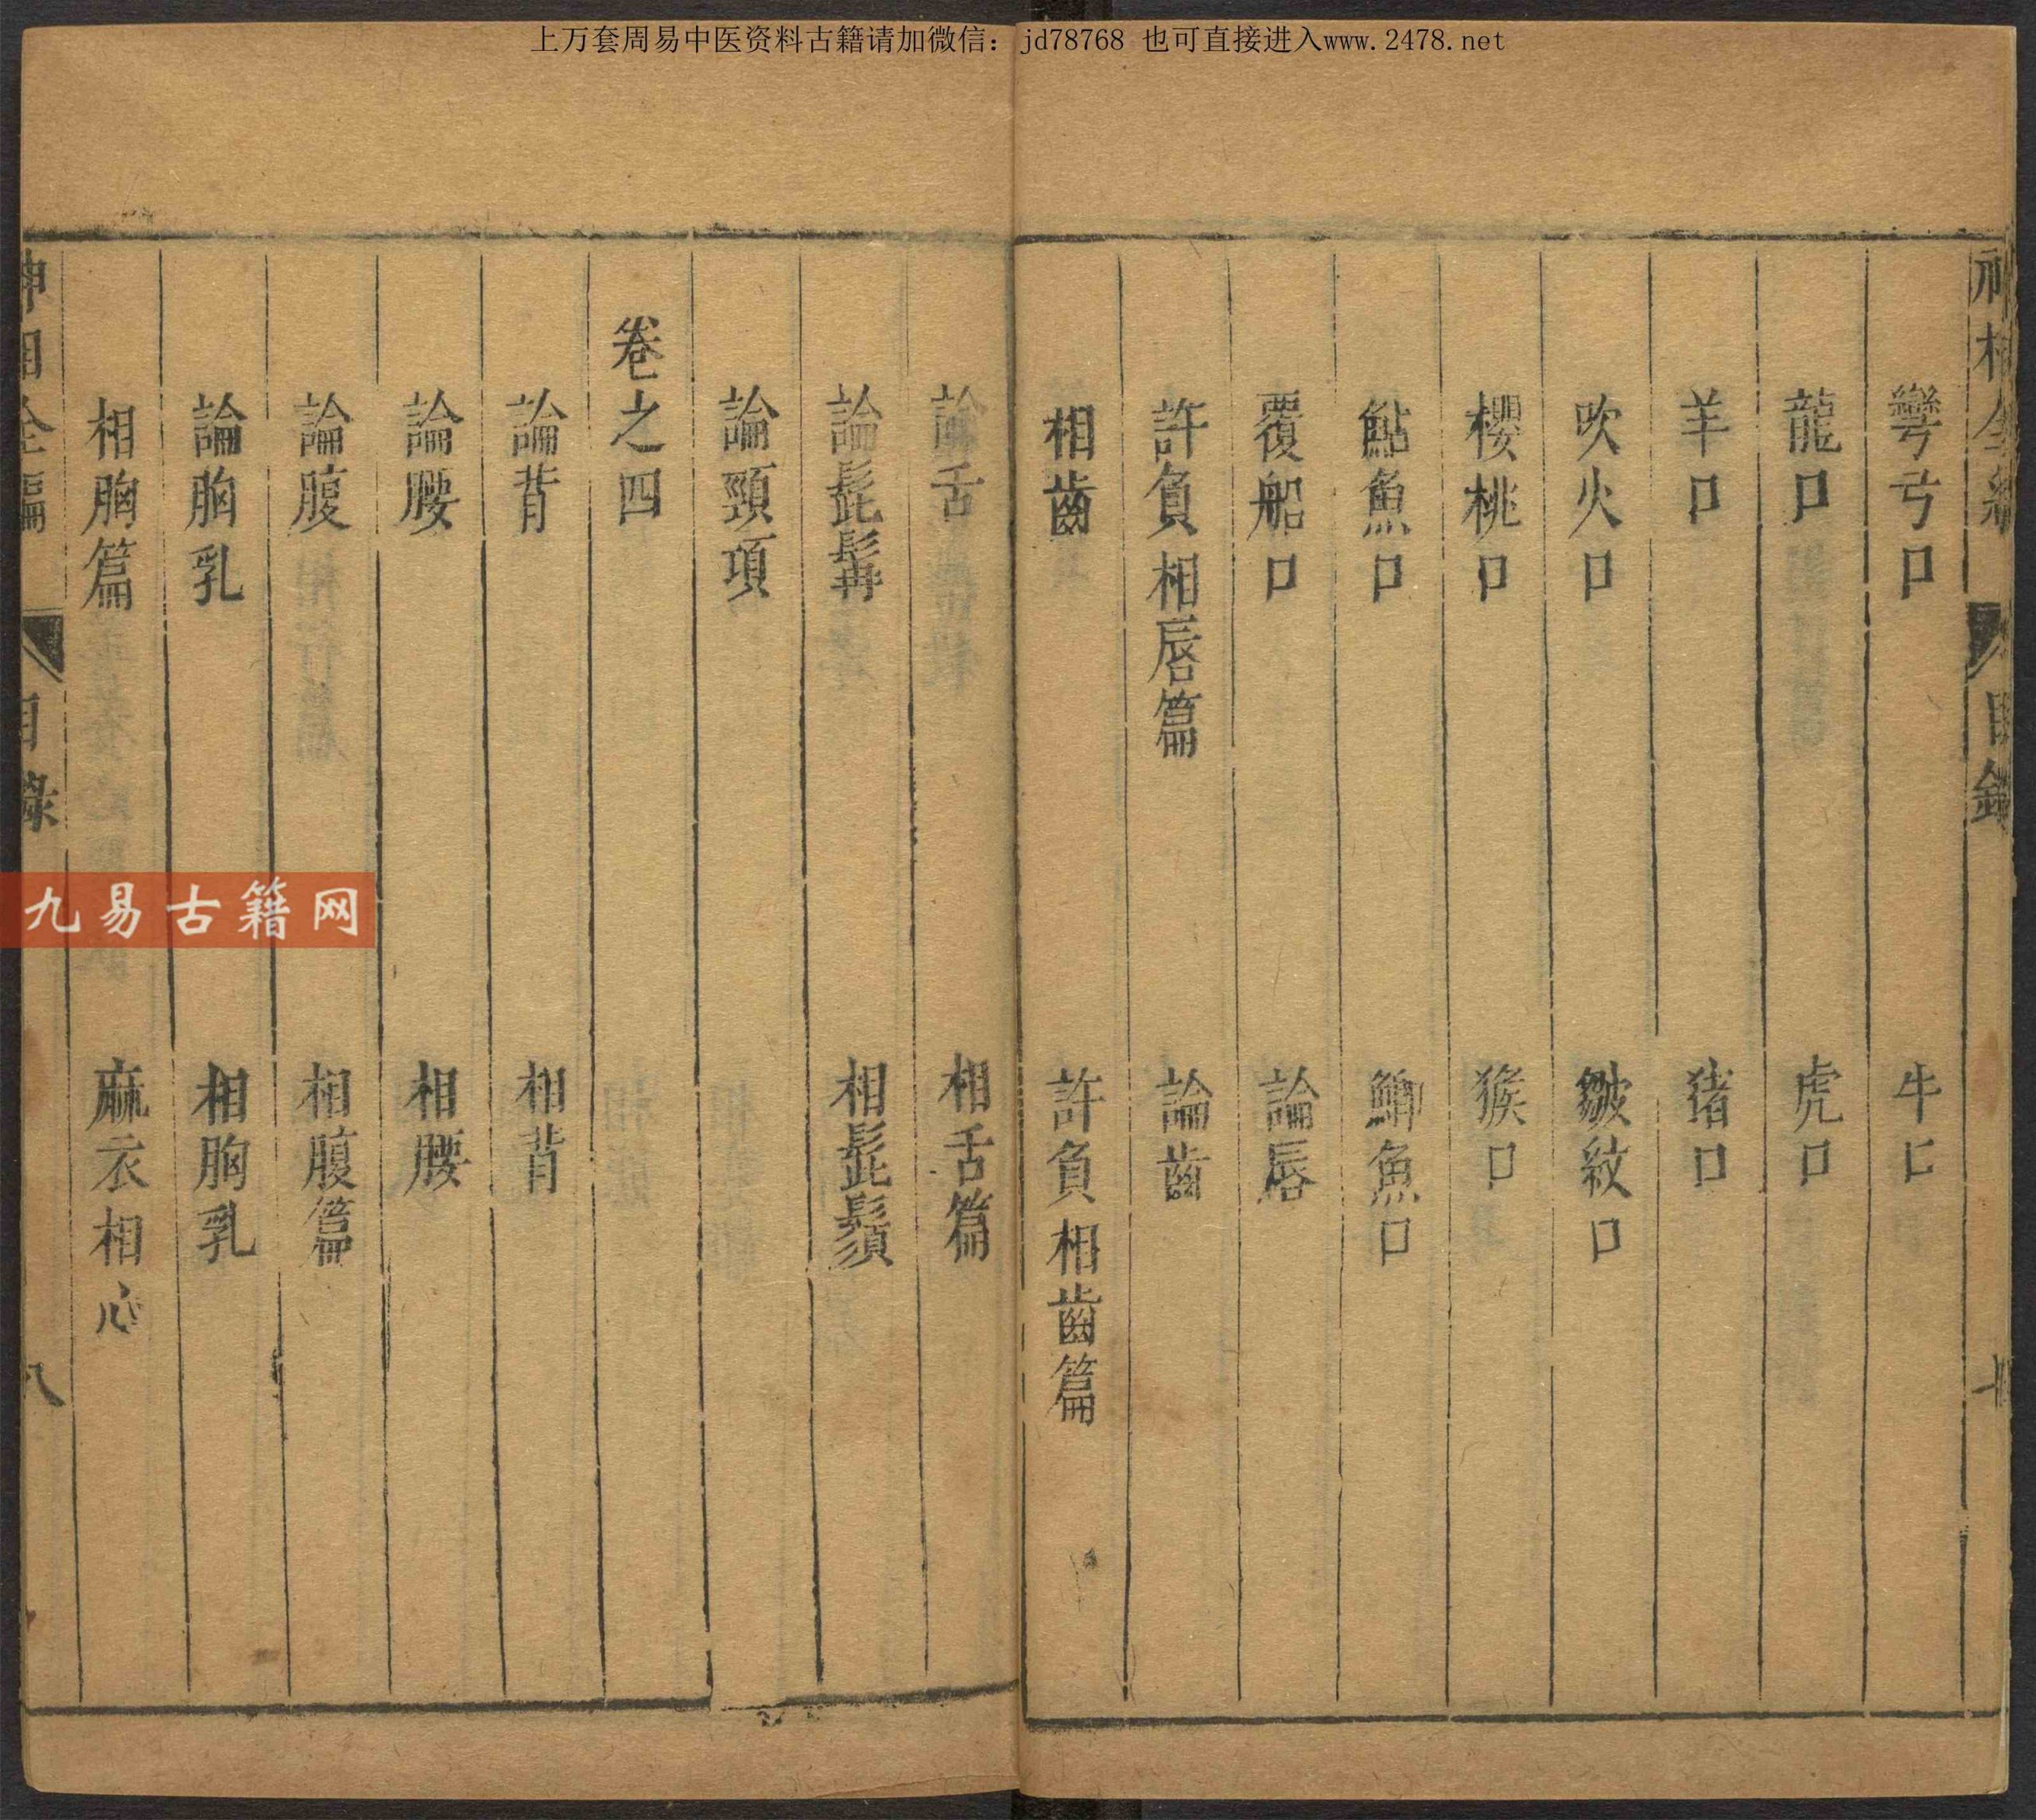 上万套周易中医资料古籍请加微信：jd78768 也可直接进入www.2478.net
神相全編 目錄 七
彎弓口 牛口
龍口 虎口
羊口 猪口
吹火口 皺紋口
櫻桃口 猴口
鮎魚口 鯽魚口
覆船口 論唇
許負相唇篇 論齒
相齒 許負相齒篇
論舌 相舌篇
論髭髯 相髭鬚
論頸項
卷之四
論背 相背
論腰 相腰
論腹 相腹篇
論胸乳 相胸乳
相胸篇 麻衣相心
神相全編 目錄 八
九易古籍网